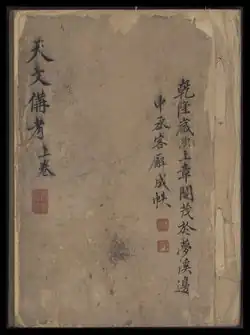 天文備考 上卷
乾隆歲次上章閹茂於夢溪邊
中丞客廨成帙